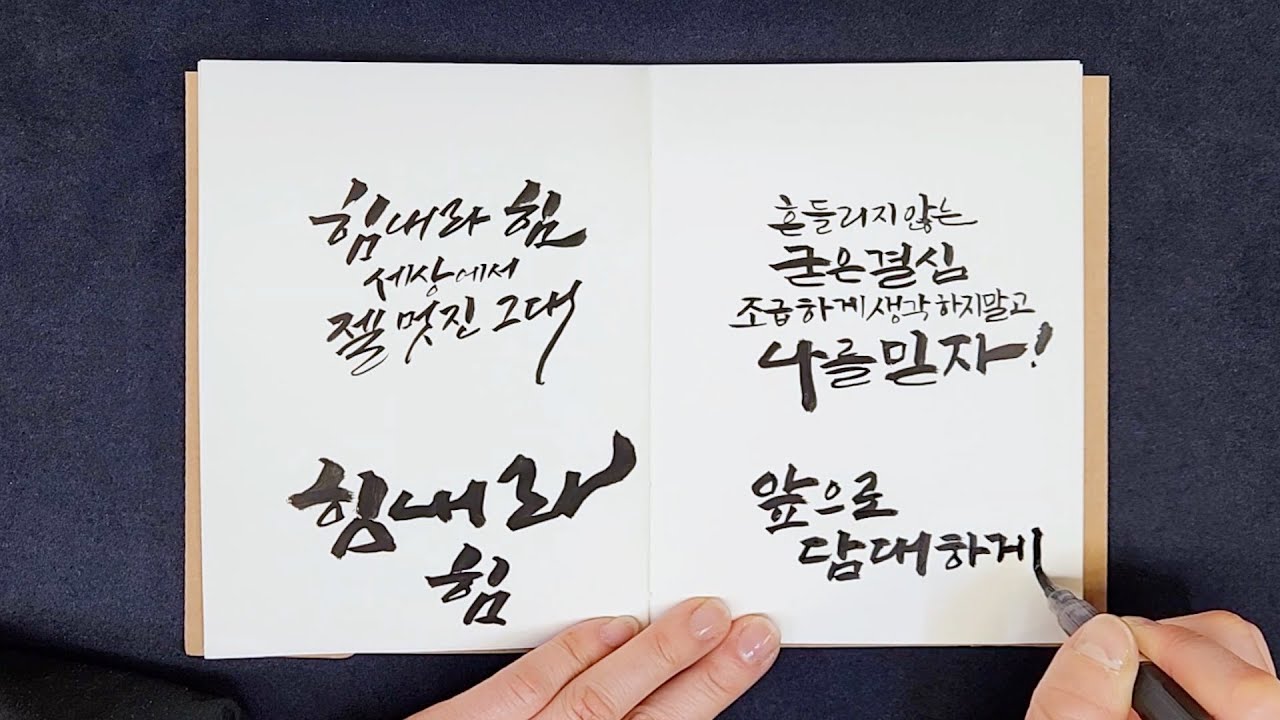 힘내라 힘
세상에서
젤 멋진 그대
힘내라
힘
흔들리지 않는
굳은 결심
조급하게 생각하지말고
나를 믿자!
앞으로
담대하게